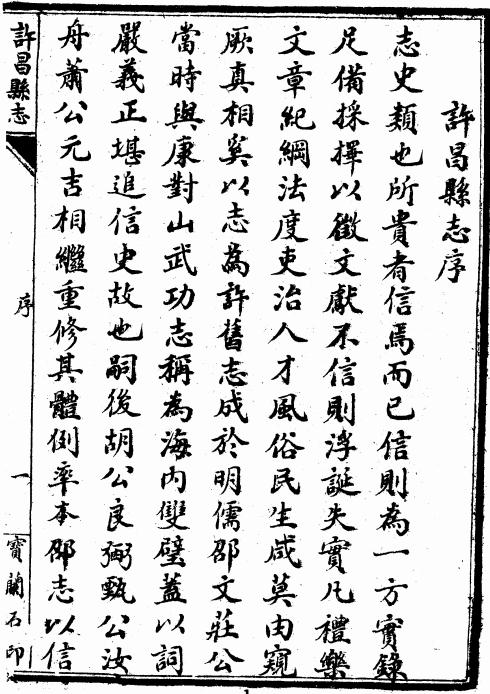 許昌縣志序
志史類也所貴者信焉而已信則為一方實錄
足備採擇以徵文獻不信則浮誕失實凡禮樂
文章紀綱法度吏治人才風俗民生咸莫由窺
厥真相奚以志為許舊志成於明儒邵文莊公
當時與康對山武功志稱為海內雙璧蓋以詞
嚴義正堪追信史故也嗣後胡公良弼甄公汝
舟蕭公元吉相繼重修其體例率本邵志以信
許昌縣志
序
一
寶蘭石印